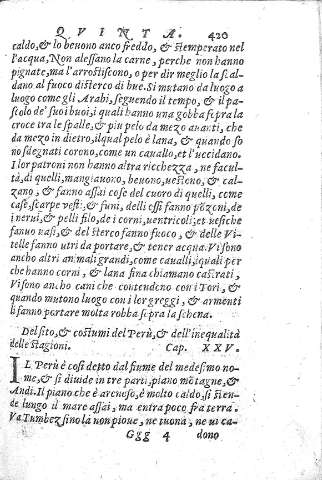 QVINTA. 420
caldo, & lo beuono anco freddo, & stemperato nel
l'acqua, Non alessano la carne, perche non hanno
pignate, ma l'arrostiscono, o per dir meglio la scal
dano al fuoco di sterco di bue. Si mutano da luogo a
luogo come gli Arabi, seguendo il tempo, & il pa-
scolo de' suoi buoi, i quali hanno una gobba sopra la
croce tra le spalle, & piu pelo da mezo auanti, che
da mezo in dietro, ilqual pelo è lana, & quando so
no sdegnati corono, come un cauallo, et l'uccidano.
I lor patroni non hanno altra ricchezza, ne facul-
tà, di quelli, mangiauono, beuono, uestono, & cal-
zano, & fanno assai cose del cuoro di quelli, come
case, scarpe uesti, & funi, delli essi fanno ponzoni, de
i nerui, & pelli filo, de i corni, uentricoli, et uesiche
fanno uasi, & del sterco fanno fuoco, & delle Vi-
telle fanno utri da portare, & tener acqua. Vi sono
ancho altri animali grandi, come caualli, i quali per
che hanno corni, & lana fina chiamano castrati,
Vi sono ancho cani che contendeno con i Tori, &
quando mutono luogo con i lor greggi, & armenti
li fanno portare molta robba sopra la schena.
Del sito, & costumi del Perù, & dell'inequalità
delle stagioni. Cap. XXV.
IL Perù è così detto dal fiume del medesimo no-
me, & si diuide in tre parti, piano mōtagne, &
Andi. Il piano che è arenoso, è molto caldo, si sten-
de lungo il mare assai, ma entra poco fra terra.
Va Tumbez sino là non pioue, ne tuona, ne ui ca-
Ggg 4 dono